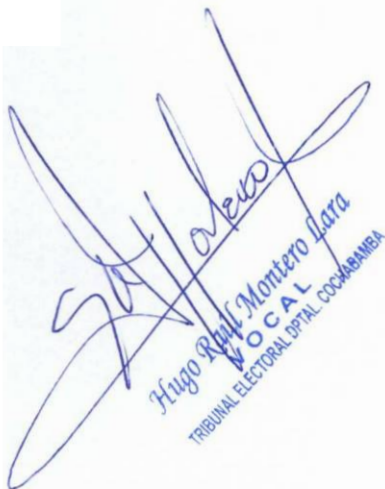 Hugo Raúl Montero Lara
VOCAL
TRIBUNAL ELECTORAL DPTAL. COCHABAMBA